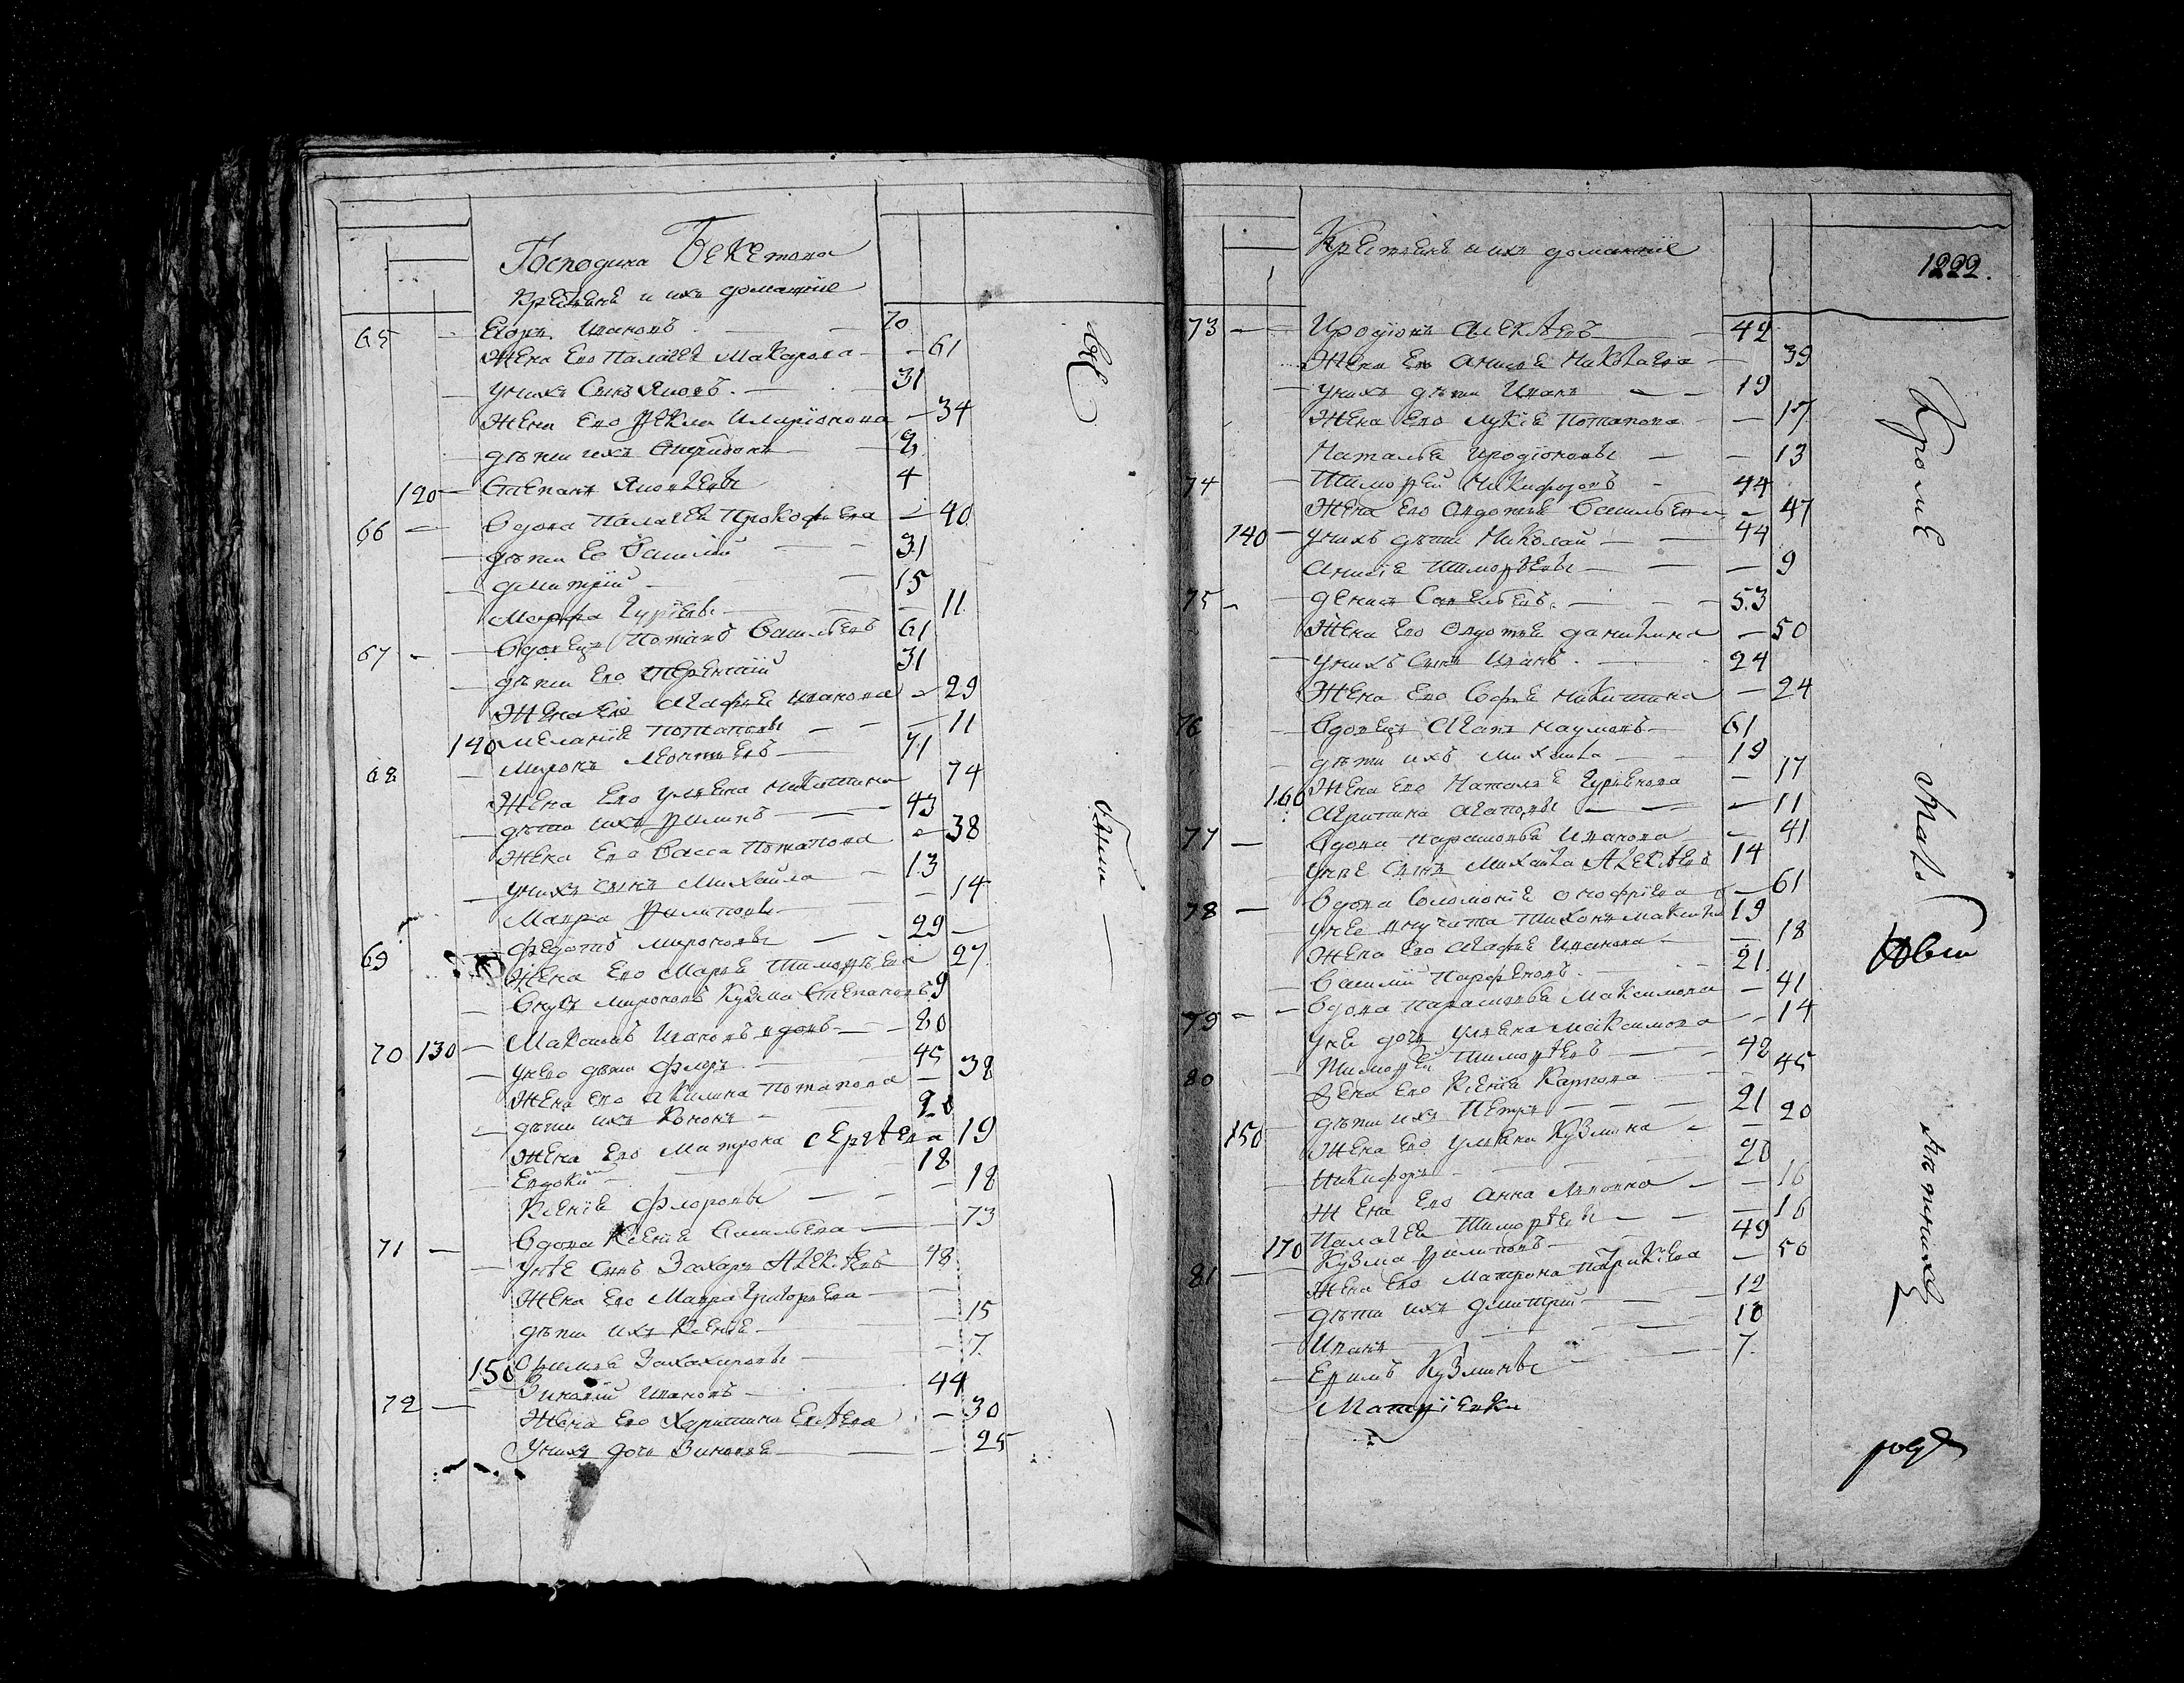 Господина Бекетова
Крестьяне и ихъ домашние
65 — Егоръ Ивановъ — 70
Жена Его Палагея Макарова — 61
у нихъ Сынъ Яковъ — 31
Жена Его Фекла Иларионова — 34
дѣти ихъ Спиридонъ — 9
120 — Степанъ Яковлевы 4
66 — Вдова Палагея Прокофьева — 40
дѣти Ее Василий — 31
дмитрий — 15
Марфа Гуриевы — 11
67 — Вдовецъ Потапъ Васильевъ 61
дѣти Его Терентий 31
Жена Его Агафья Иванова — 29
140 Меланиа Потаповы — 11
68 — Миронъ Леонтьевъ — 71
Жена Его Ульяна Никитина 74
дѣти ихъ Филипъ — 43
Жена Его Васса Потапова — 38
у нихъ сынъ Михайла — 13
Мавра Филиповы — 14
69 — Федотъ Мироновы — 29 —
Жена Его Марья Тимофѣева 27
Внукъ Мироновъ Кузма Степановъ 9
70 130 — Максимъ Ивановъ вдовъ — 80
у него дѣти Флоръ — 45
Жена Его Акилина Потапова — 38
дѣти ихъ Кононъ — 20
Жена Его Матрона Сергѣева 19
Евдоким — 18
Ксения Флоровы — 18
71 — Вдова Ксения Васильева — 73
у нее Сынъ Захаръ Алексѣевъ 48
Жена Его Мавра Григорьева —
дѣти ихъ Ксения — 15
150 Захаровы — 7
72 — Зиновий Ивановъ — 44
Жена Его Харитина Евсѣева — 30
у нихъ дочь Зиновья — 25
Крестьянъ и ихъ домашние
1222.
73 — Иродионъ Алексѣевъ — 42
Жена Его Анисья Николаева — 39
у нихъ дѣти Иванъ — 19
Жена Его Лукия Потапова — 17
Наталья Иродионовы — 13
74 Тимофей Никифоровъ — 44
Жена Его Авдотья Васильева — 47
140 — у нихъ дѣти Николай — 44
Анисия Тимофѣевы — 9
75 — Денис Савельевъ — 53
Жена Его Авдотья Данилина — 50
у нихъ Сынъ Иванъ — 24
Жена Его Софья Никитина — 24
76 — Вдовецъ Агапъ Наумовъ — 61
дѣти ихъ Михаила — 19
160 Жена Его Наталья Гурьянова — 17
Агрипина Агаповы — 11
77 — Вдова Парасковья Иванова — 41
у нее Сынъ Михайла Алексѣевъ 14
78 — Вдова Соломония Онофриева — 61
у нее внучата Тихонъ 19
Жена Его Агафья Иванова — 18
Василий Парфеновъ — 21
79 — Вдова Парасковья Максимова — 41
у нее дочь Ульяна Максимова — 14
80 Тимофей Тимофѣевъ — 42
Жена Его Ксения Карпова — 45
дѣти ихъ Петръ — 21
150 Жена Его Ульяна Кузмина — 20
Никифоръ — 20
Жена Его Анна — 16
170 Палагея Тимофѣевы — 16
81 — Кузма Филиповъ — 49
Жена Его Матрона — 50
дѣти ихъ Дмитрий — 12
Иванъ — 10
Ефимъ Кузмины — 7.
Кроме